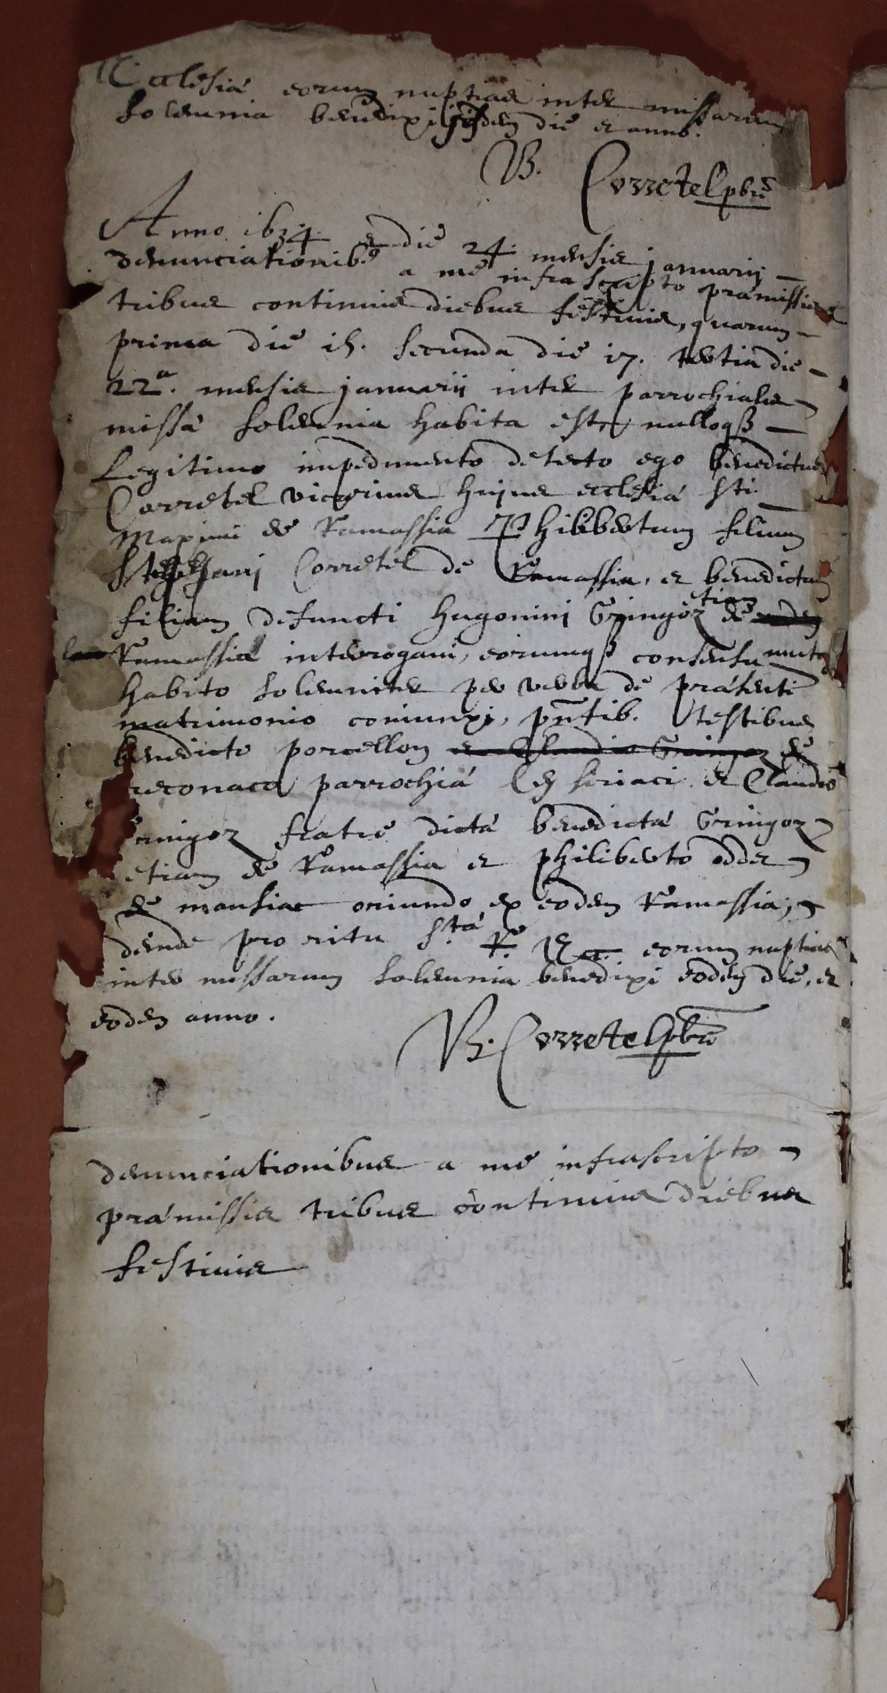 Ecclesiæ eorum nuptias inter missarum
solemnia benedixi eodem die et anno.
B. Corretel pbr
Anno 1634 et die 24. mensis januarij
denunciationib9 a me infrascripto præmissis
tribus continuis diebus festivis, quarum
prima die 15. secunda die 17. tertia die
22a. mensis januarij inter parrochialis
missæ solemnia habita est, nulloqz
Legitimo impedimento detecto ego benedictus
Corretel vicarius hujus ecclesiæ sti
Maximi de Ramassia Philibertum filium
Stephani Corretel de Ramassia, et benedictam
filiam defuncti hugonini Gringoz etiam de
Ramassia interrogavi, eorumqz consensu mutuo
habito solemniter per verba de præsenti
matrimonio coniunxi, pntib. testibus
benedicto porcellon et Claudio Gringoz de
parrochiæ et Claudio
Gringoz fratre dictæ benedictæ Gringoz
etiam de Ramassia et philiberto odde
de mansiac oriundo ex eodem Ramassia;
deinde pro ritu stæ R. E. eorum nuptias
inter missarum solemnia benedixi eodem die, et
eodem anno.
B. Corretel pbr
denunciationibus a me infrascripto
præmissis tribus continuis diebus
festivis